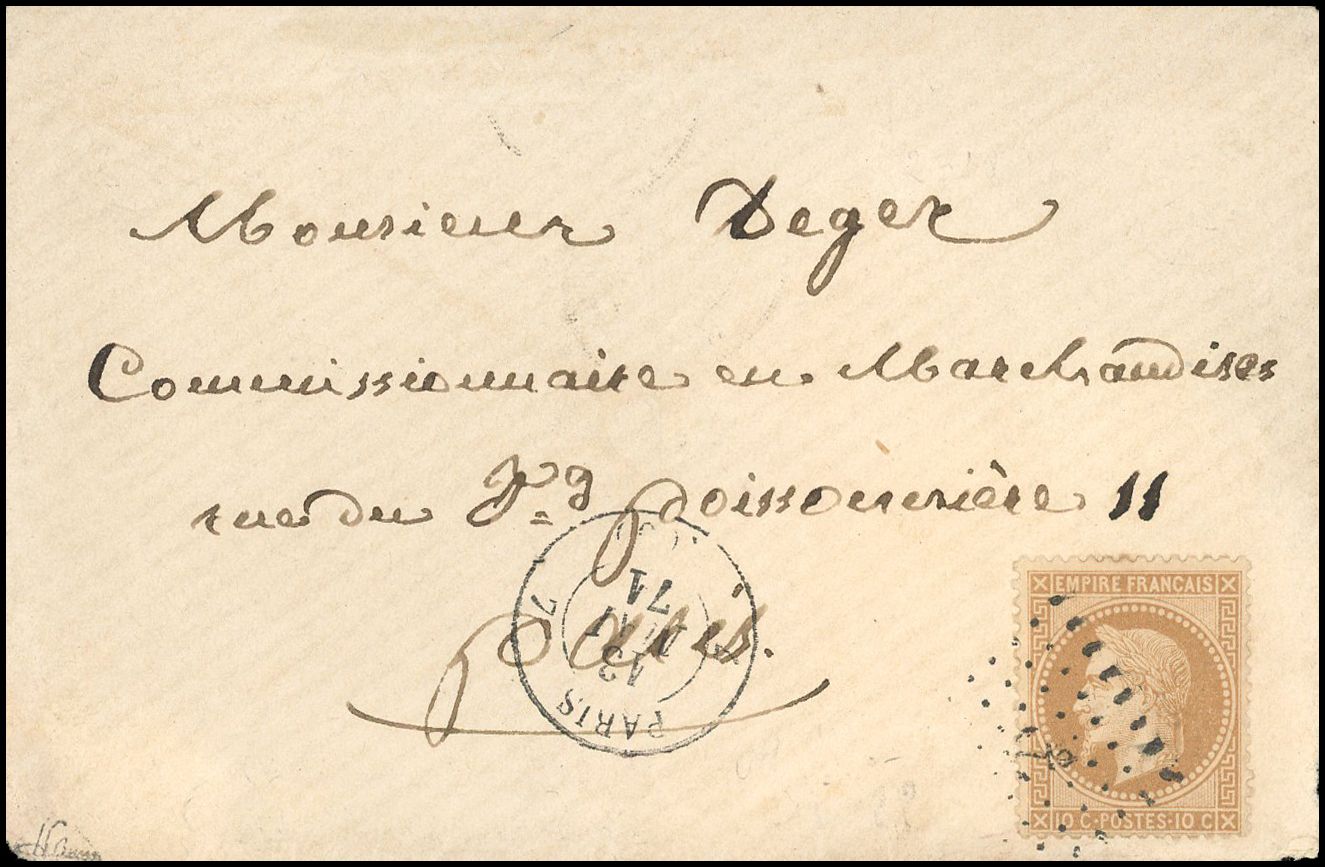 Monsieur Deger
Commissionnaire en Marchandises
rue du Fg poissonnière 11
Paris.
PARIS
13
71
EMPIRE FRANÇAIS
10 C · POSTES · 10 C